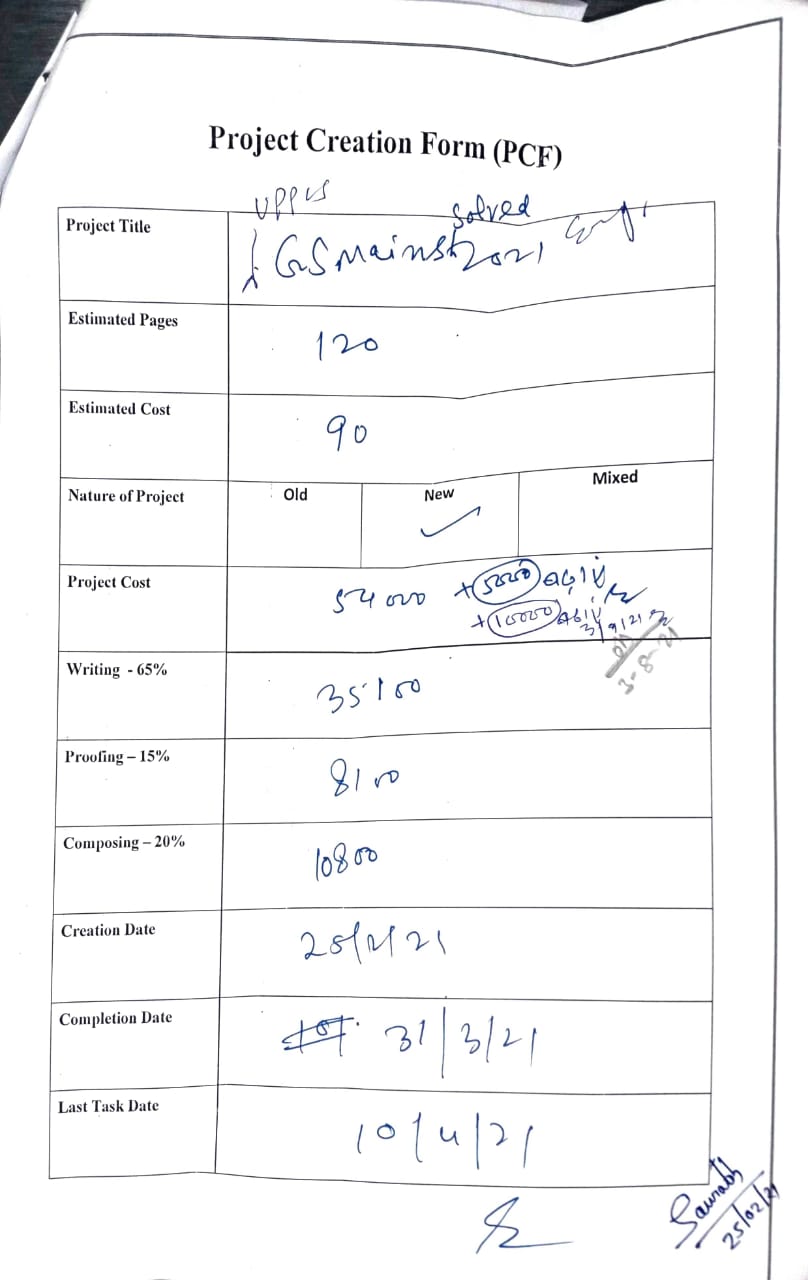 Project Creation Form (PCF)
UPPCS
Project Title
Solved
GS Mains 2021
Estimated Pages
120
Estimated Cost
90
Nature of Project
Old
New
Mixed
Project Cost
54000
+5000
+10000
3/9/21
3-8-21
Writing - 65%
35100
Proofing – 15%
8100
Composing – 20%
10800
Creation Date
25/2/21
Completion Date
31/3/21
Last Task Date
10/4/21
Saurabh
25/02/21